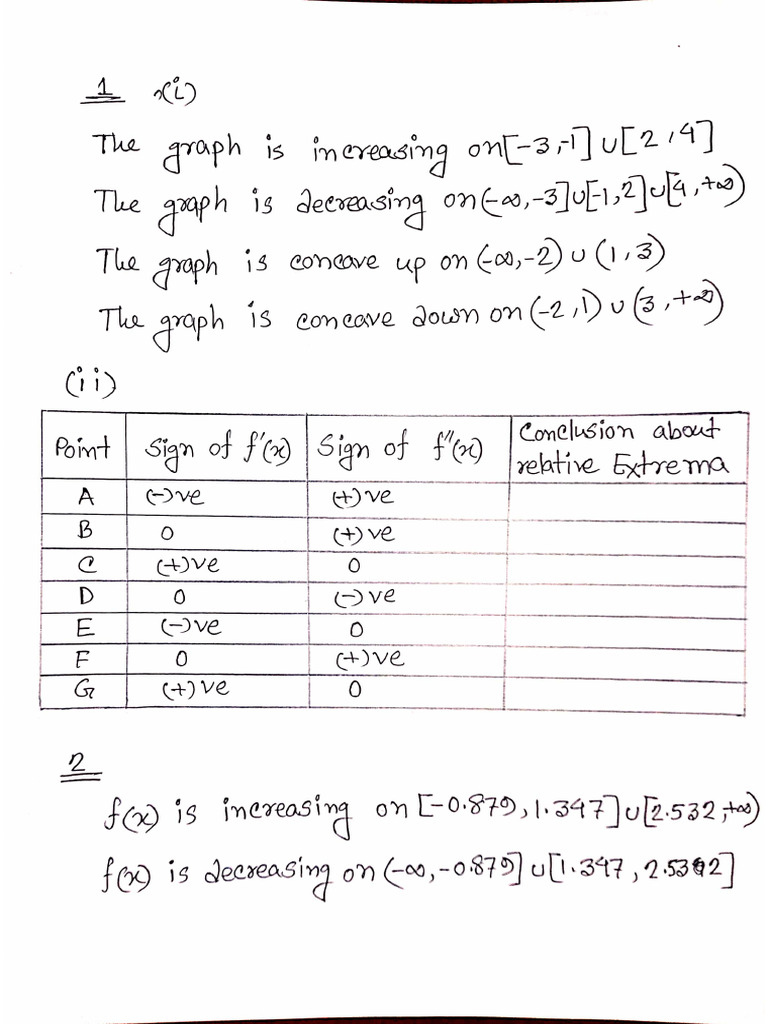 1 (i)
The graph is increasing on [-3,-1] ∪ [2,4]
The graph is decreasing on (-∞,-3] ∪ [-1,2] ∪ [4,+∞)
The graph is concave up on (-∞,-2) ∪ (1,3)
The graph is concave down on (-2,1) ∪ (3,+∞)
(ii)
Point | Sign of f'(x) | Sign of f''(x) | Conclusion about relative Extrema
A | (-)ve | (+)ve |
B | 0 | (+)ve |
C | (+)ve | 0 |
D | 0 | (-)ve |
E | (-)ve | 0 |
F | 0 | (+)ve |
G | (+)ve | 0 |
2
f(x) is increasing on [-0.879, 1.347] ∪ [2.532,+∞)
f(x) is decreasing on (-∞,-0.879] ∪ [1.347, 2.532]